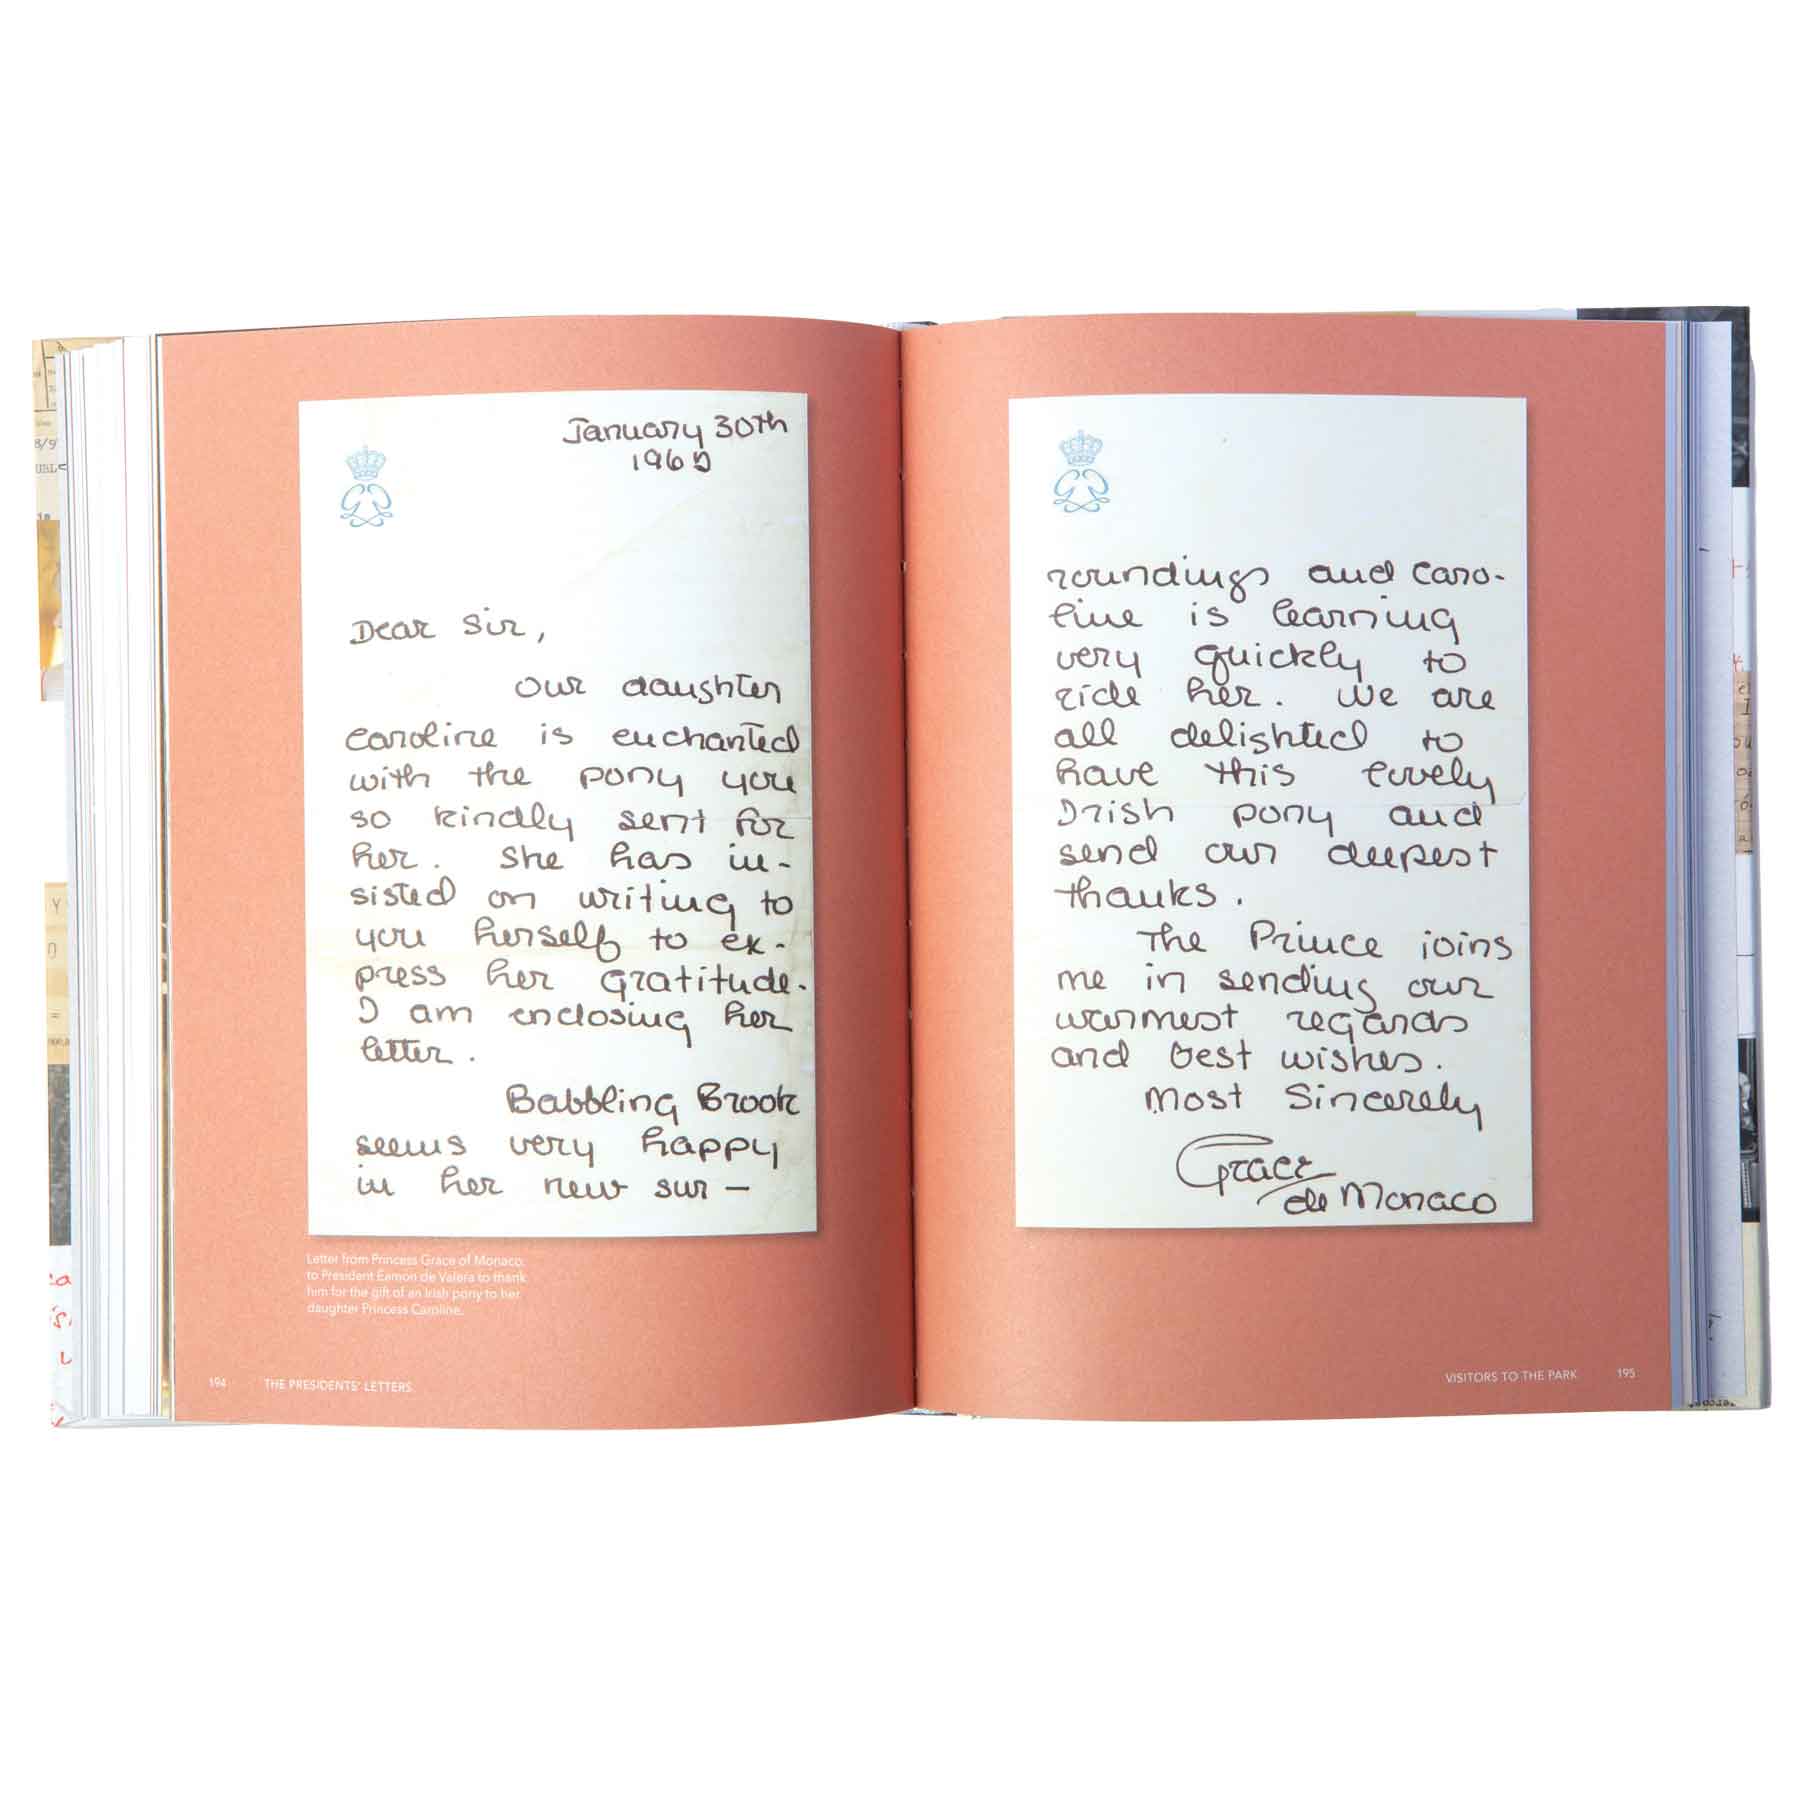 January 30th
1965
Dear Sir,
Our daughter
Caroline is enchanted
with the pony you
so kindly sent for
her. She has in-
sisted on writing to
you herself to ex-
press her gratitude.
I am enclosing her
letter.
Babbling Brook
seems very happy
in her new sur-
Letter from Princess Grace of Monaco
to President Eamon de Valera to thank
him for the gift of an Irish pony to her
daughter Princess Caroline.
194 THE PRESIDENTS' LETTERS
roundings and Caro-
line is learning
very quickly to
ride her. We are
all delighted to
have this lovely
Irish pony and
send our deepest
thanks.
The Prince joins
me in sending our
warmest regards
and best wishes.
Most Sincerely
Grace
de Monaco
VISITORS TO THE PARK 195